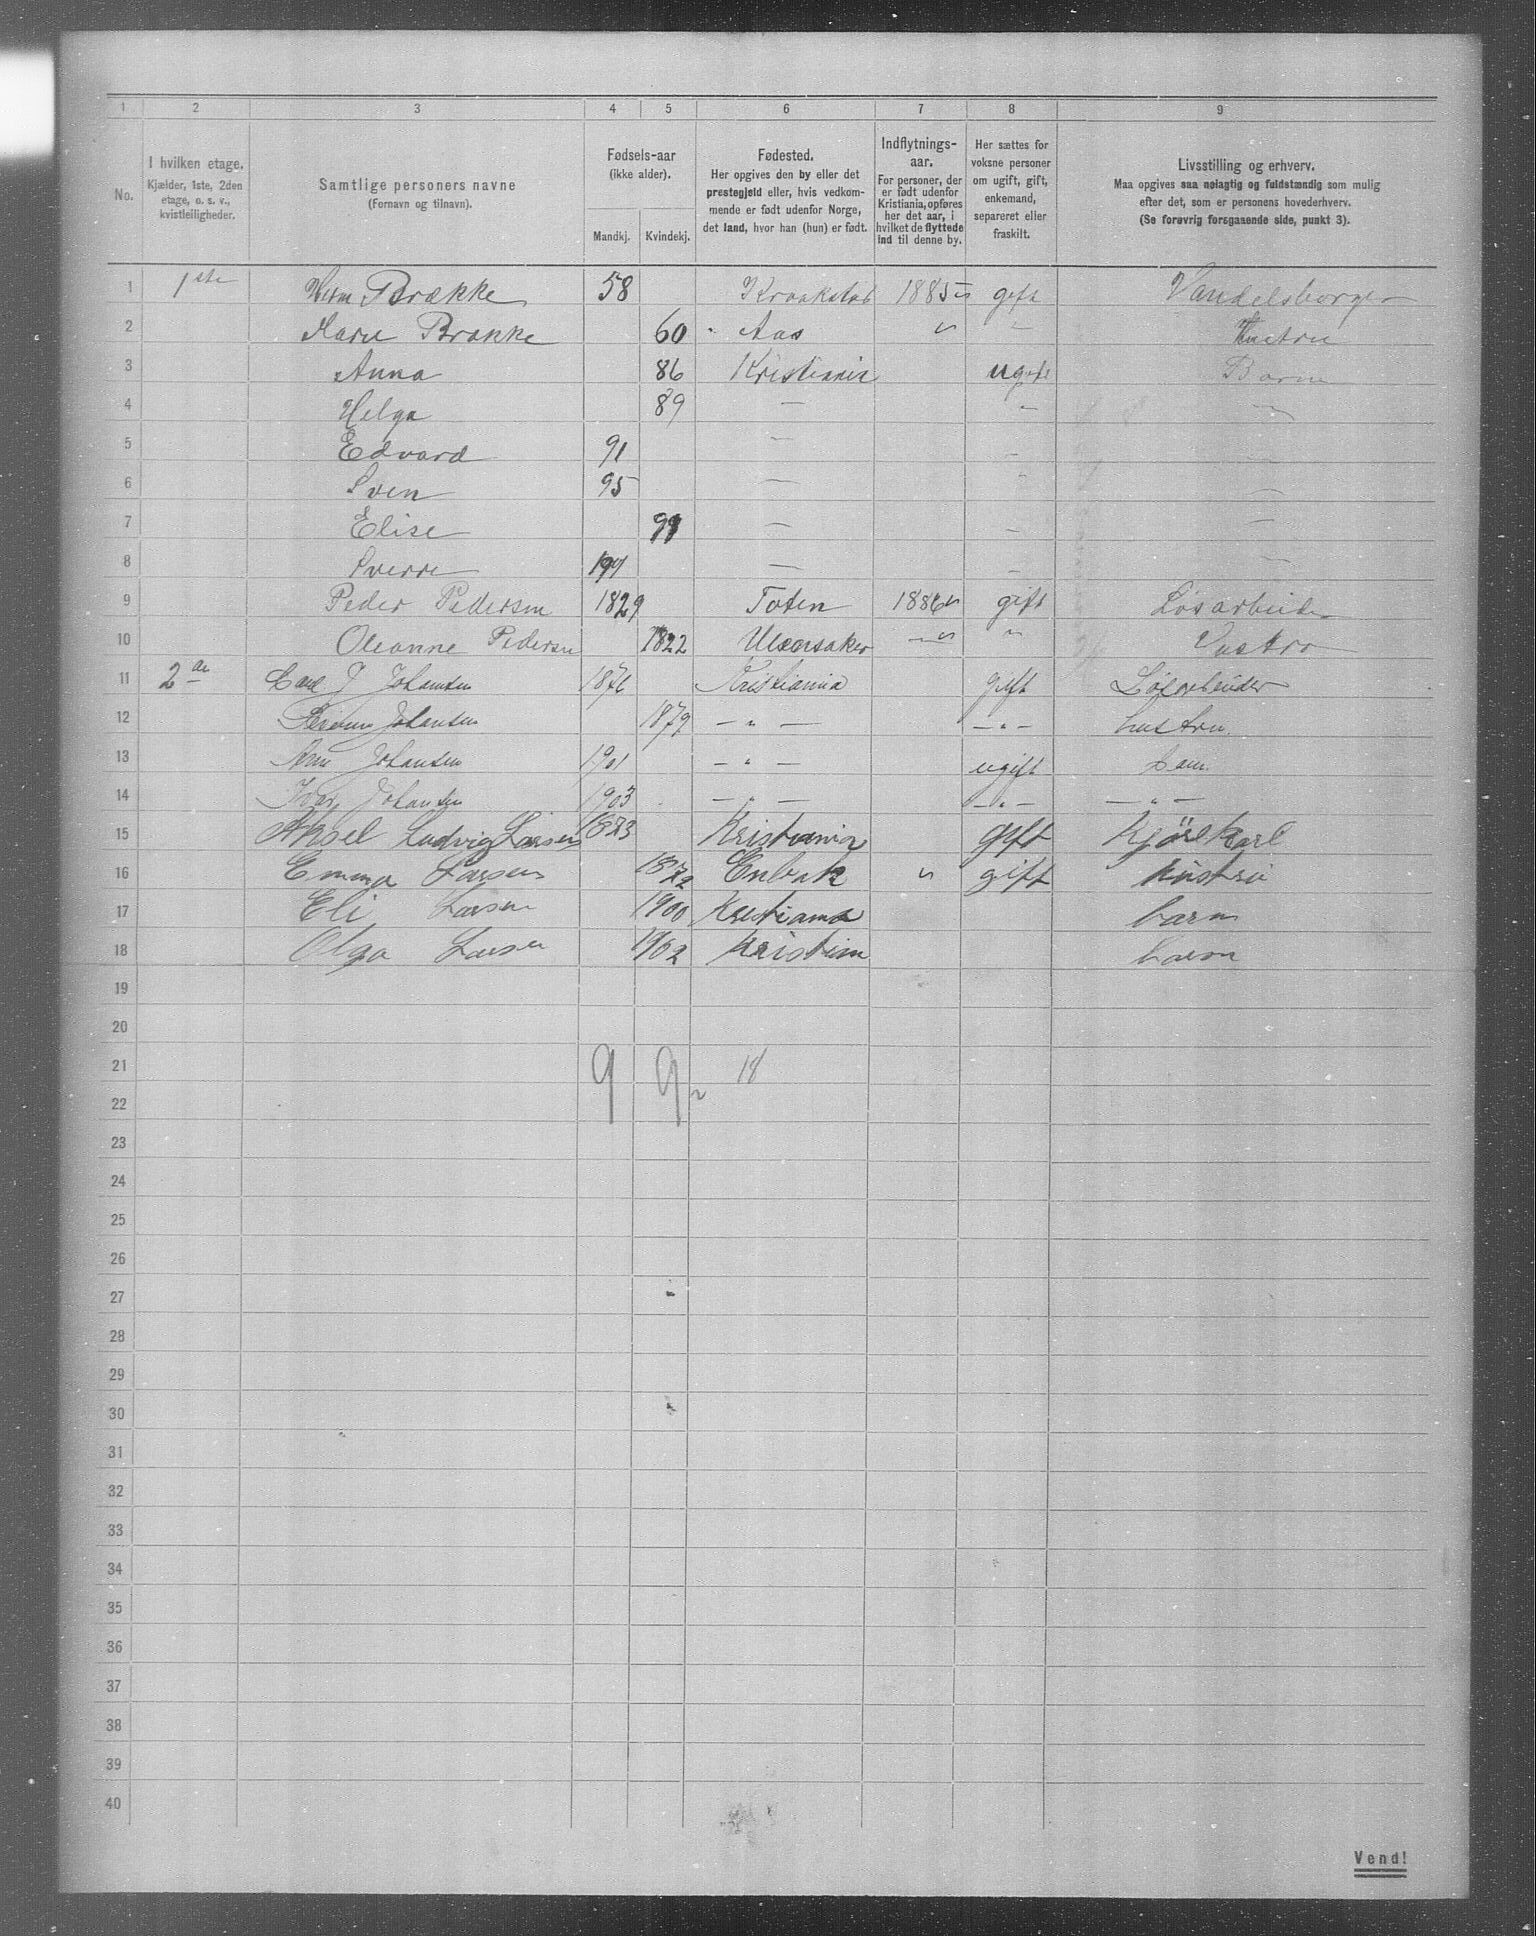 1 2 3 4 5 6 7 8 9
No.
I hvilken etage.
Kjælder, 1ste, 2den
etage, o. s. v.,
kvistleiligheder.
Samtlige personers navne
(Fornavn og tilnavn).
Fødsels-aar
(ikke alder).
Mandkj. Kvindekj.
Fødested.
Her opgives den by eller det
prestegjeld eller, hvis vedkom-
mende er født udenfor Norge,
det land, hvor han (hun) er født.
Indflytnings-
aar.
For personer, der
er født udenfor
Kristiania, opføres
her det aar, i
hvilket de flyttede
ind til denne by.
Her sættes for
voksne personer
om ugift, gift,
enkemand,
separeret eller
fraskilt.
Livsstilling og erhverv.
Maa opgives saa nøiagtig og fuldstændig som mulig
efter det, som er personens hovederhverv.
(Se forøvrig forsgaaende side, punkt 3).
1 1ste Brække 58 Kraakstad 1885 gift
2 Brække 60 Aas " Hustru
3 Anna 86 Kristiania ugift Barn
4 Helga 89 — " —
5 Edvard 91 — — —
6 Sven 95 — " —
7 Elise — — —
8 Sverre — — —
9 Peder Pedersen 1829 Toten 1886 gift Løsarbeider
10 Oleanne Pedersen 1822 Ullensaker — " Hustru
11 2de Carl J Johansen 1876 Kristiania gift Løsarbeider
12 Johansen 1879 — " — — " — hustru
13 Johansen 1901 — " — ugift barn
14 Ivar Johansen 1903 — " — — " — — " —
15 Aksel Ludvig Larsen 1873 Kristiania gift Kjørekarl
16 Emma Larsen 1872 Enbak gift Hustru
17 Eli Larsen 1900 Kristiania barn
18 Olga Larsen 1902 Kristian barn
19
20
21 9 9 18
22
23
24
25
26
27
28
29
30
31
32
33
34
35
36
37
38
39
40
Vend!